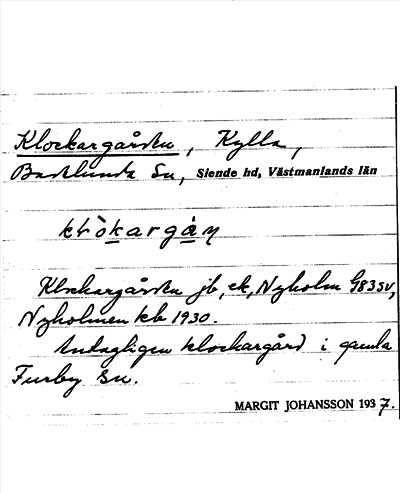 Klockargården, Kylla,
Badelunda Sn, Siende hd, Västmanlands län
klòkargàɳ
Klockargården jb, ek, Nyholm G83SV,
Nyholmen kb 1930.
Antagligen klockargård i gamla
Furby sn.
MARGIT JOHANSSON 1937.